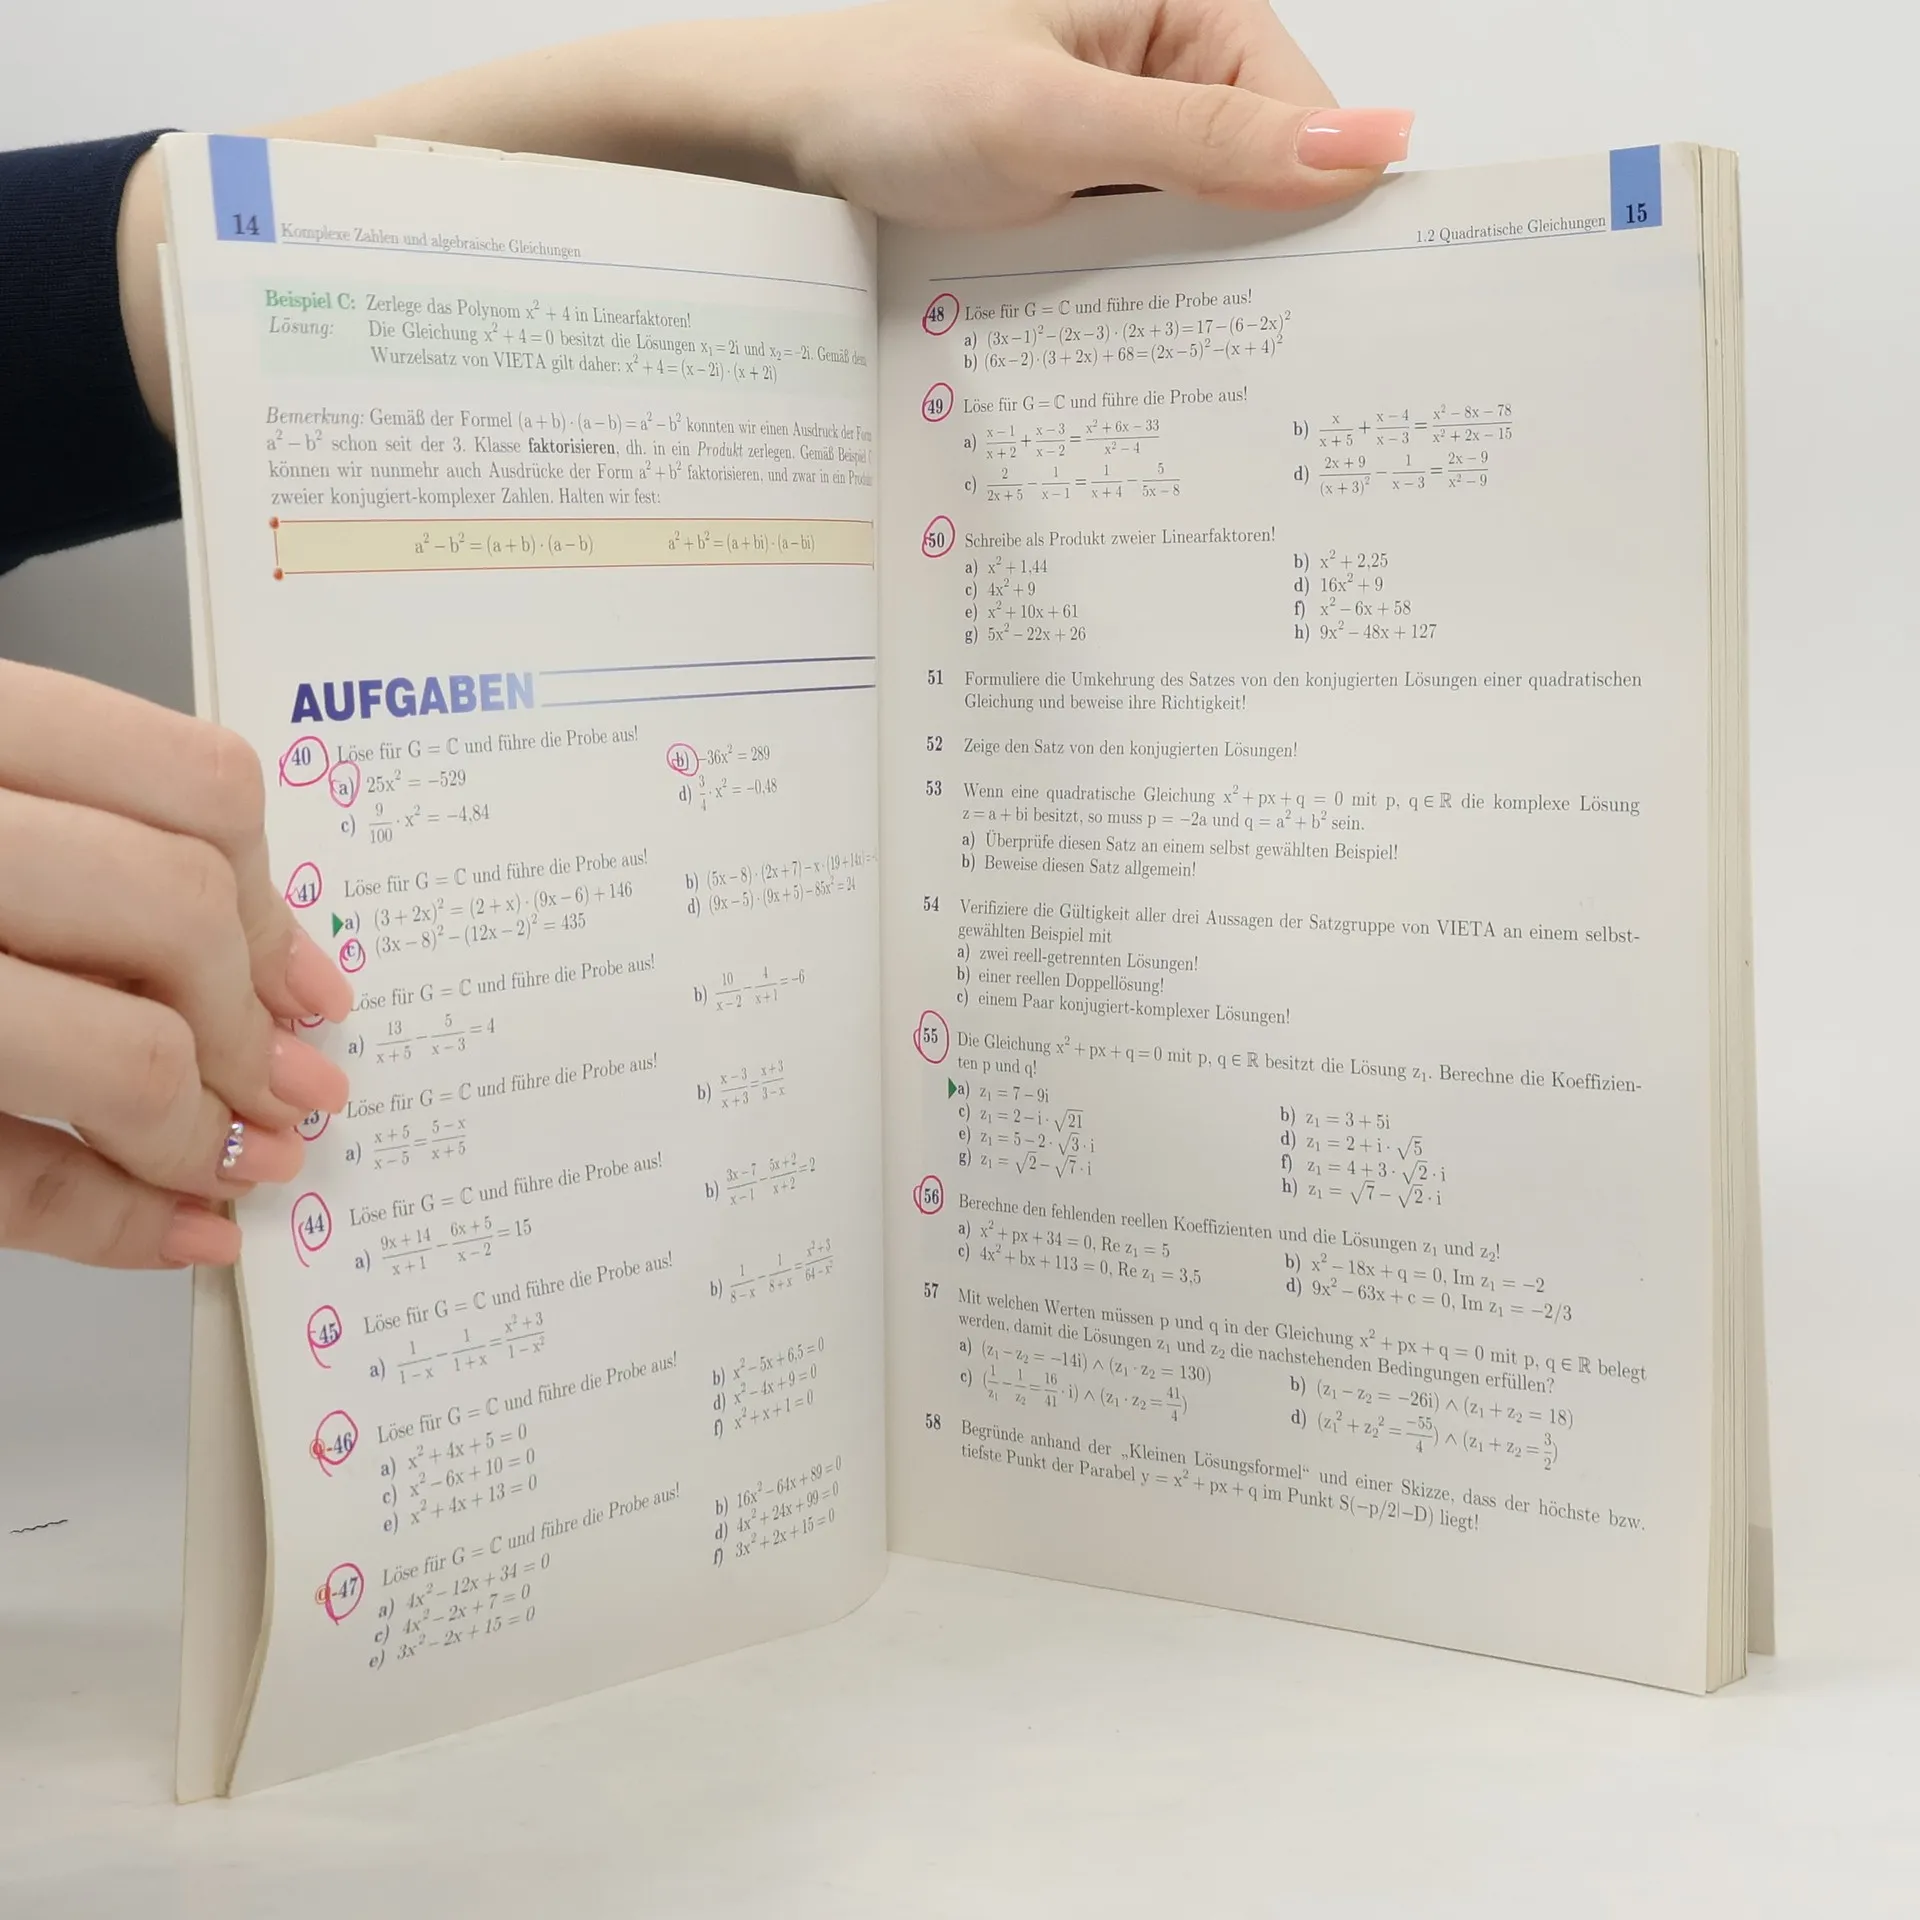 14 Komplexe Zahlen und algebraische Gleichungen
Beispiel C: Zerlege das Polynom x² + 4 in Linearfaktoren!
Lösung: Die Gleichung x² + 4 = 0 besitzt die Lösungen x₁ = 2i und x₂ = -2i. Gemäß dem
Wurzelsatz von VIETA gilt daher: x² + 4 = (x − 2i) · (x + 2i)
Bemerkung: Gemäß der Formel (a + b) · (a − b) = a² − b² konnten wir einen Ausdruck der Form
a² − b² schon seit der 3. Klasse faktorisieren, dh. in ein Produkt zerlegen. Gemäß Beispiel C
können wir nunmehr auch Ausdrücke der Form a² + b² faktorisieren, und zwar in ein Produkt
zweier konjugiert-komplexer Zahlen. Halten wir fest:
a² − b² = (a + b) · (a − b) a² + b² = (a + bi) · (a − bi)
AUFGABEN
40 Löse für G = ℂ und führe die Probe aus!
a) 25x² = −529 b) −36x² = 289
c) 9/100 · x² = −4,84 d) 3/4 · x² = −0,48
41 Löse für G = ℂ und führe die Probe aus!
a) (3 + 2x)² = (2 + x) · (9x − 6) + 146 b) (5x − 8) · (2x + 7) − x · (19 + 14x) =
c) (3x − 8)² − (12x − 2)² = 435 d) (9x − 5) · (9x + 5) − 85x² = 24
Löse für G = ℂ und führe die Probe aus!
a) 13/(x + 5) − 5/(x − 3) = 4 b) 10/(x − 2) − 4/(x + 1) = −6
43 Löse für G = ℂ und führe die Probe aus!
a) (x + 5)/(x − 5) = (5 − x)/(x + 5) b) (x − 3)/(x + 3) = (x + 3)/(3 − x)
44 Löse für G = ℂ und führe die Probe aus!
a) (9x + 14)/(x + 1) − (6x + 5)/(x − 2) = 15 b) (3x − 7)/(x − 1) − (5x + 2)/(x + 2) = 2
45 Löse für G = ℂ und führe die Probe aus!
a) 1/(1 − x) − 1/(1 + x) = (x² + 3)/(1 − x²) b) 1/(8 − x) − 1/(8 + x) = (x² + 3)/(64 − x²)
46 Löse für G = ℂ und führe die Probe aus!
a) x² + 4x + 5 = 0 b) x² − 5x + 6,5 = 0
c) x² − 6x + 10 = 0 d) x² − 4x + 9 = 0
e) x² + 4x + 13 = 0 f) x² + x + 1 = 0
47 Löse für G = ℂ und führe die Probe aus!
a) 4x² − 12x + 34 = 0 b) 16x² − 64x + 89 = 0
c) 4x² − 2x + 7 = 0 d) 4x² + 24x + 99 = 0
e) 3x² − 2x + 15 = 0 f) 3x² + 2x + 15 = 0
1.2 Quadratische Gleichungen 15
48 Löse für G = ℂ und führe die Probe aus!
a) (3x − 1)² − (2x − 3) · (2x + 3) = 17 − (6 − 2x)²
b) (6x − 2) · (3 + 2x) + 68 = (2x − 5)² − (x + 4)²
49 Löse für G = ℂ und führe die Probe aus!
a) (x − 1)/(x + 2) + (x − 3)/(x − 2) = (x² + 6x − 33)/(x² − 4) b) x/(x + 5) + (x − 4)/(x − 3) = (x² − 8x − 78)/(x² + 2x − 15)
c) 2/(2x + 5) − 1/(x − 1) = 1/(x + 4) − 5/(5x − 8) d) (2x + 9)/(x + 3)² − 1/(x − 3) = (2x − 9)/(x² − 9)
50 Schreibe als Produkt zweier Linearfaktoren!
a) x² + 1,44 b) x² + 2,25
c) 4x² + 9 d) 16x² + 9
e) x² + 10x + 61 f) x² − 6x + 58
g) 5x² − 22x + 26 h) 9x² − 48x + 127
51 Formuliere die Umkehrung des Satzes von den konjugierten Lösungen einer quadratischen
Gleichung und beweise ihre Richtigkeit!
52 Zeige den Satz von den konjugierten Lösungen!
53 Wenn eine quadratische Gleichung x² + px + q = 0 mit p, q ∈ ℝ die komplexe Lösung
z = a + bi besitzt, so muss p = −2a und q = a² + b² sein.
a) Überprüfe diesen Satz an einem selbst gewählten Beispiel!
b) Beweise diesen Satz allgemein!
54 Verifiziere die Gültigkeit aller drei Aussagen der Satzgruppe von VIETA an einem selbst-
gewählten Beispiel mit
a) zwei reell-getrennten Lösungen!
b) einer reellen Doppellösung!
c) einem Paar konjugiert-komplexer Lösungen!
55 Die Gleichung x² + px + q = 0 mit p, q ∈ ℝ besitzt die Lösung z₁. Berechne die Koeffizien-
ten p und q!
a) z₁ = 7 − 9i b) z₁ = 3 + 5i
c) z₁ = 2 − i · √21 d) z₁ = 2 + i · √5
e) z₁ = 5 − 2 · √3 · i f) z₁ = 4 + 3 · √2 · i
g) z₁ = √2 − √7 · i h) z₁ = √7 − √2 · i
56 Berechne den fehlenden reellen Koeffizienten und die Lösungen z₁ und z₂!
a) x² + px + 34 = 0, Re z₁ = 5 b) x² − 18x + q = 0, Im z₁ = −2
c) 4x² + bx + 113 = 0, Re z₁ = 3,5 d) 9x² − 63x + c = 0, Im z₁ = −2/3
57 Mit welchen Werten müssen p und q in der Gleichung x² + px + q = 0 mit p, q ∈ ℝ belegt
werden, damit die Lösungen z₁ und z₂ die nachstehenden Bedingungen erfüllen?
a) (z₁ − z₂ = −14i) ∧ (z₁ · z₂ = 130) b) (z₁ − z₂ = −26i) ∧ (z₁ + z₂ = 18)
c) (1/z₁ − 1/z₂ = 16/41 · i) ∧ (z₁ · z₂ = 41/4) d) (z₁² + z₂² = −55/4) ∧ (z₁ + z₂ = 3/2)
58 Begründe anhand der „Kleinen Lösungsformel“ und einer Skizze, dass der höchste bzw.
tiefste Punkt der Parabel y = x² + px + q im Punkt S(−p/2|−D) liegt!